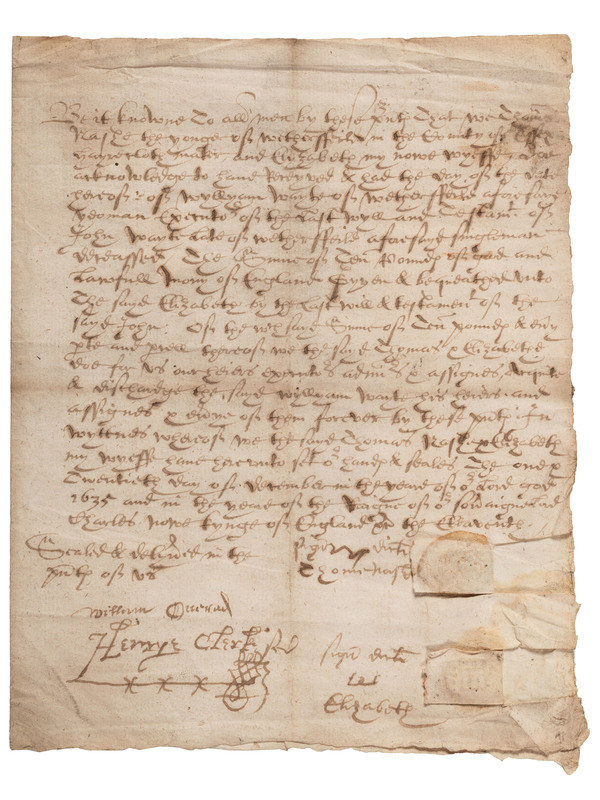 Be it knowne to all men by these pnts that we Thomas
Nashe the yonger of Wethersfeild in the County of Essex
and Elizabeth my nowe wyffe
acknowledge to have receyved & had the day of the date
hereof of Wyllyam Wayte of Wethersfeild aforesaid
yeoman Executor of the last wyll and Testamt of
John Wayte late of Wethersfeild aforesayd singleman
deceassed The Sume of Ten Pounds of good and
lawfull mony of England Gyven & bequethed unto
The sayd Elizabeth by the last will & testament of the
sayd John. Of the wch sayd Sume of Ten pounds & every
pte and pcell thereof we the sayd Thomas & Elizabeth
doe for us our heiers executrs admrs & assignes Acquite
& discharge the sayd Wyllyam Waite his heiers and
assignes & every of them forever by these pnts In
wyttnes whereof we the sayd Thomas Nashe & Elizabeth
my wyeffe have hereunto set or hands & seales The one &
Twentieth day of December in the yeare of or Lord god
1635 and in the yeare of the Raigne of or Soveraigne Lord
Charles nowe kynge of England &c the Eleaventh.
Sealed & delivered in the
pnts of us
Signu dicti
Thome Nashe
William
Henrye Clerke
x x x
Signu dicte
Elizabeth